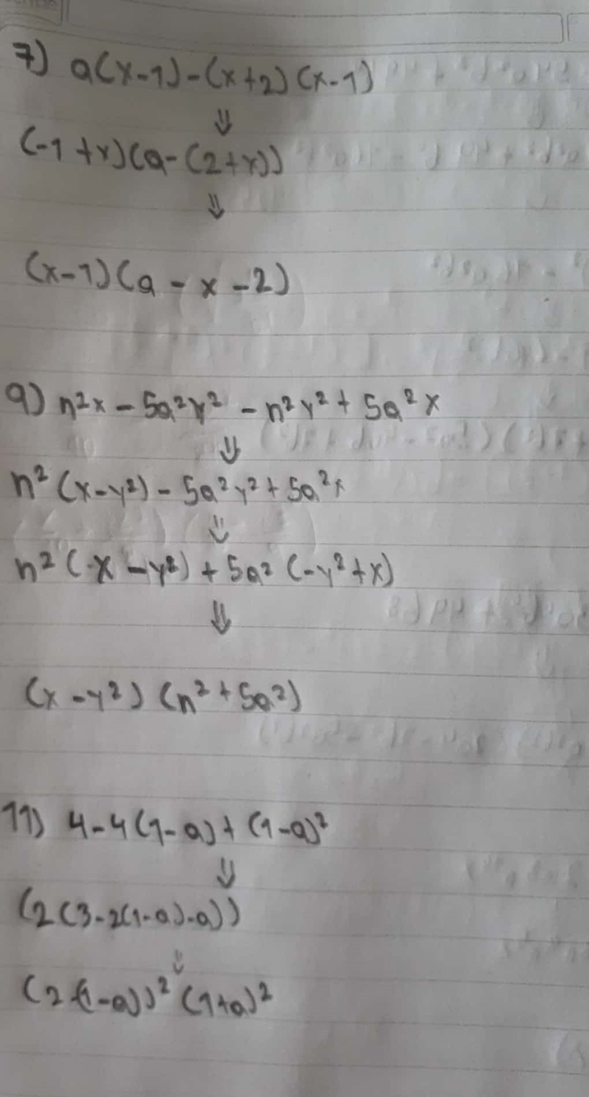 7) a(x-1)-(x+2)(x-1)
⇓
(-1+x)(a-(2+x))
⇓
(x-1)(a-x-2)
9) n²x - 5a²y² - n²y² + 5a²x
⇓
n²(x-y²) - 5a²y² + 5a²x
⇓
n²(x-y²) + 5a²(-y²+x)
⇓
(x-y²)(n²+5a²)
11) 4-4(1-a)+(1-a)²
⇓
(2(3-2(1-a)-a))
⇓
(2-(1-a))² (1+a)²